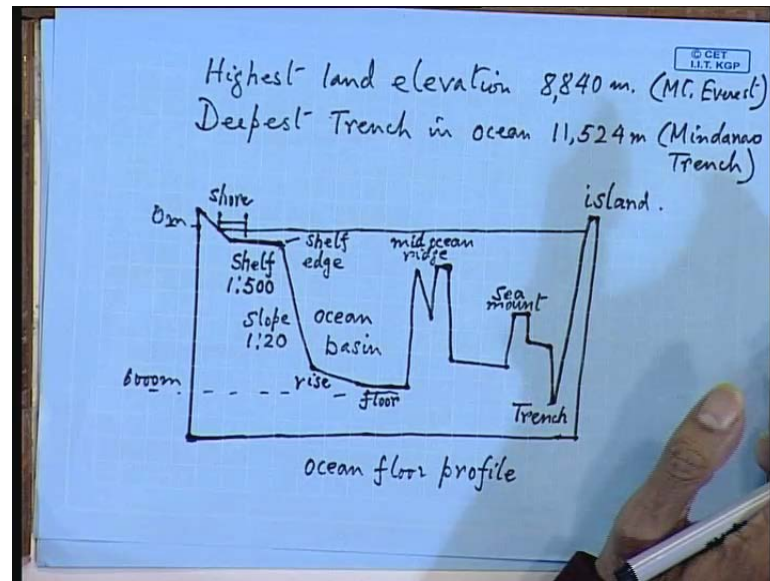 © CET
I.I.T. KGP
Highest land elevation 8,840 m. (MT. Everest)
Deepest Trench in ocean 11,524 m (Mindanao
Trench)
shore
island.
0m
shelf
edge
mid ocean
ridge
Shelf
1:500
sea
mount
Slope
1:20
ocean
basin
6000m
rise
floor
Trench
ocean floor profile